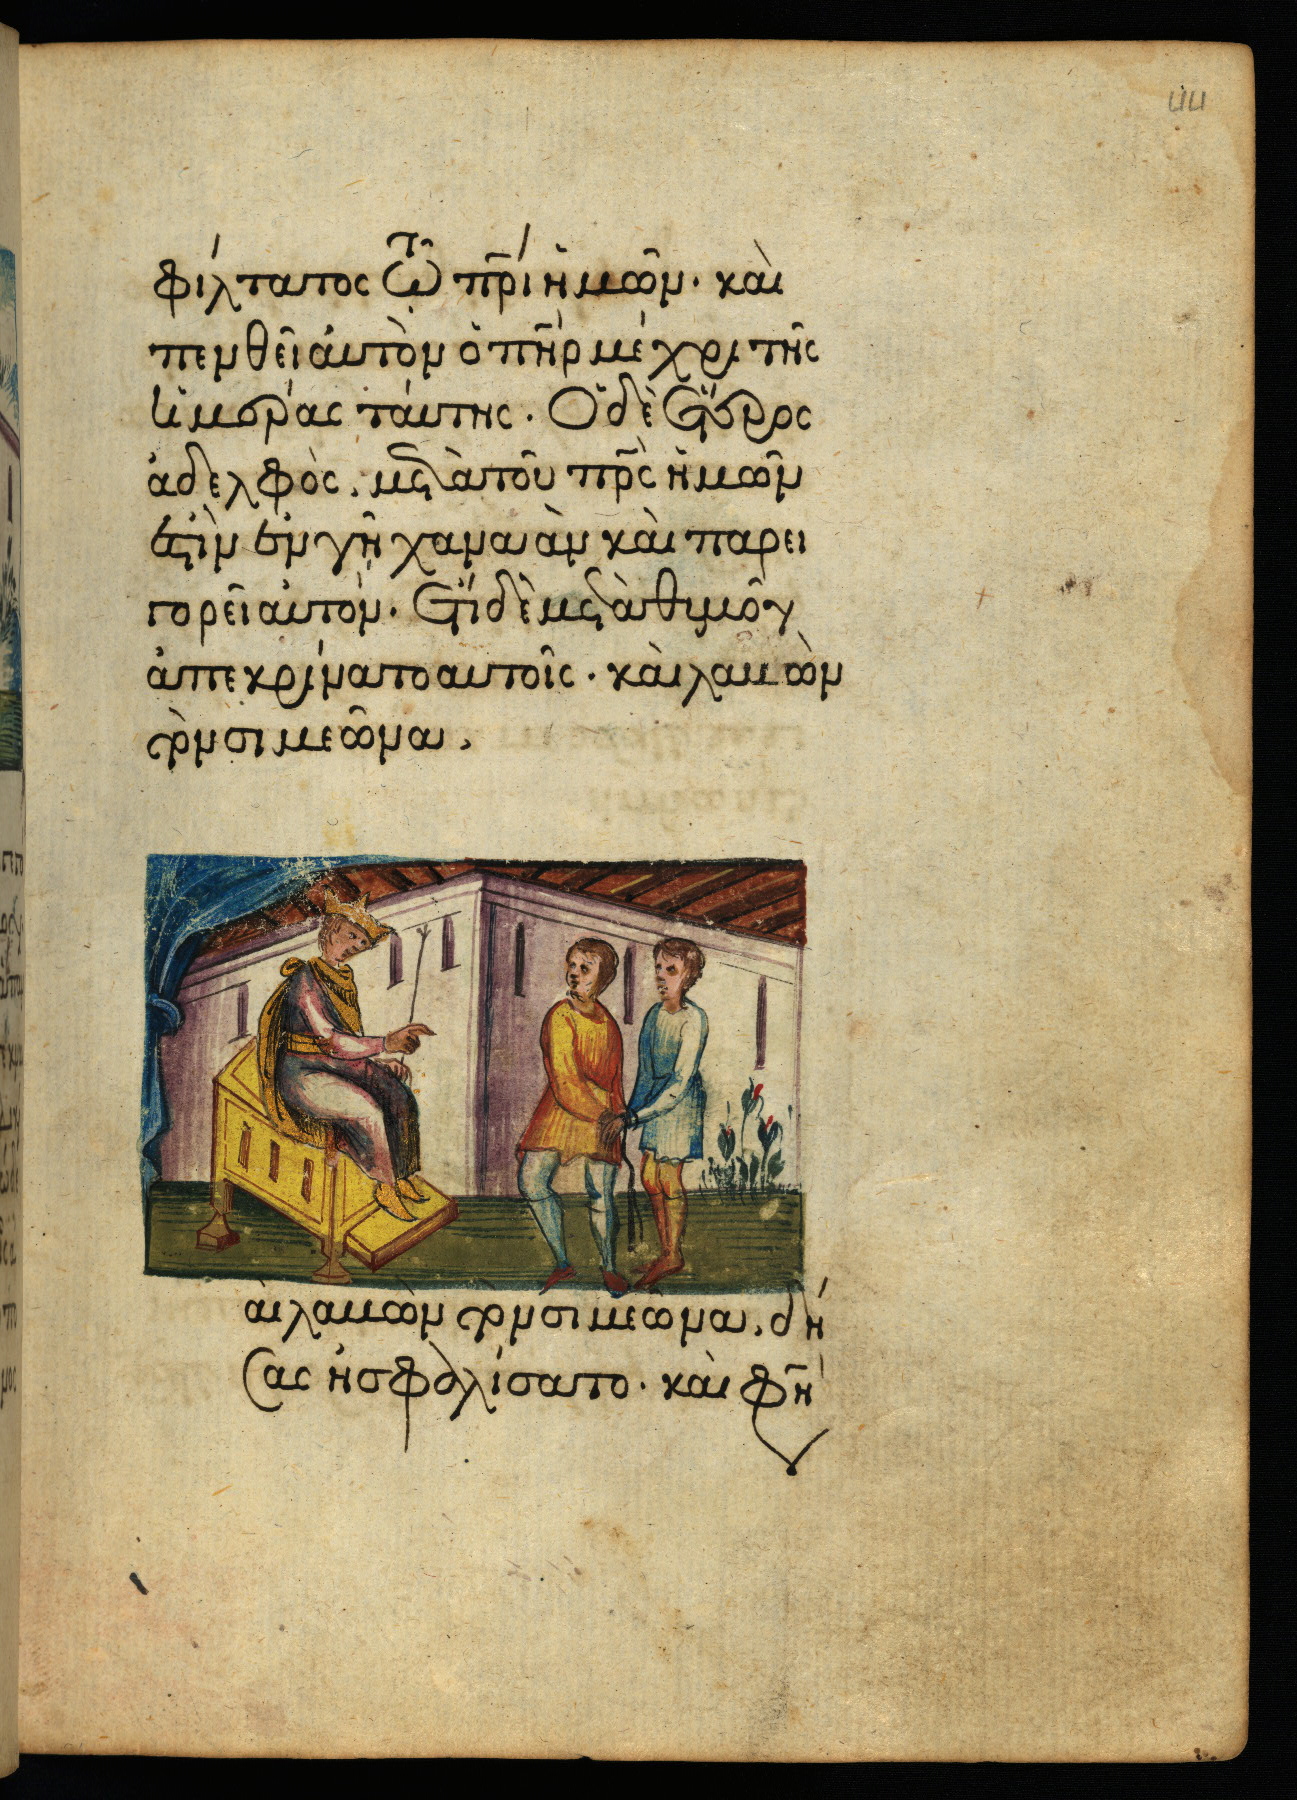 44
φίλτατος ὦ τ πρ̅ί ἡμῶν· καὶ
πενθεῖ αὐτὸν ὁ πη̅ρ μέχρι τῆς
ἡμέρας ταύτης. Ὁ δὲ ἕτερος
ἀδελφὸς, μετὰ τοῦ πρ̅ς ἡμῶν
ἐστὶν ἐν γῇ χαναὰν καὶ παρει
γορεῖ αὐτόν. Ἔτι δὲ μετὰ θυμοῦ
ἀπεκρίνατο αὐτοῖς. καὶ λαβὼν
τὸν σιμεῶνα,
αι λαβὼν τὸν σιμεῶνα, δή
σας ἠσφαλίσατο. καὶ φη